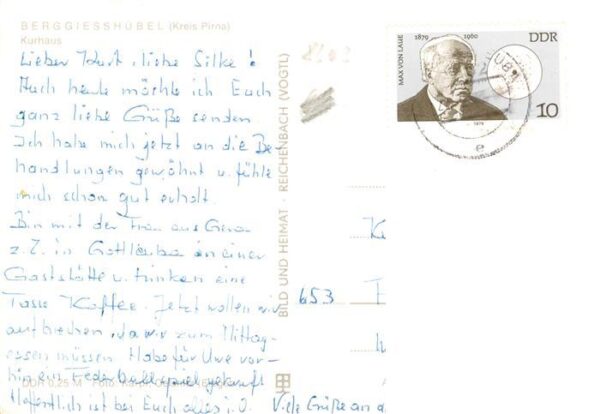 BERGGIESSHÜBEL (Kreis Pirna)
Kurhaus
Lieber Kurt, liebe Silke!
Auch heute möchte ich Euch
ganz liebe Grüße senden.
Ich habe mich jetzt an die Be-
handlungen gewöhnt u. fühle
mich schon gut erholt.
Bin mit der Frau aus Gera
z. Z. in Gottleuba in einer
Gaststätte u. trinken eine
Tasse Kaffee. Jetzt wollen wir
aufbrechen, da wir zum Mittag-
essen müssen. Habe für Uwe vor-
hin ein Federballspiel gekauft
Hoffentlich ist bei Euch alles i.O.
Viele Grüße an
DDR 0,25 M
BILD UND HEIMAT · REICHENBACH (VOGTL)
MAX VON LAUE
1879 1960
DDR
10
1979
e
653